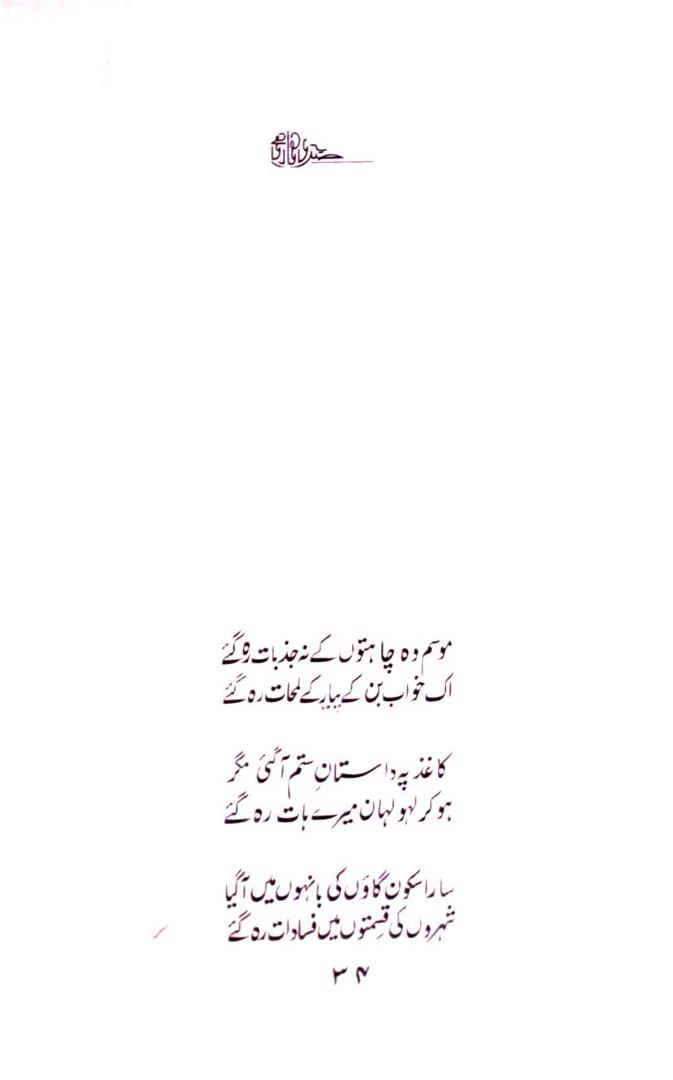 موسم وہ چاہتوں کے نہ جذبات رہ گئے
اک خواب بن کے پیار کے لمحات رہ گئے
کاغذ پہ داستانِ ستم آ گئی مگر
ہو کر لہو لہان میرے ہات رہ گئے
سارا سکون گاؤں کی بانہوں میں آ گیا
شہروں کی قسمتوں میں فسادات رہ گئے
۳۴